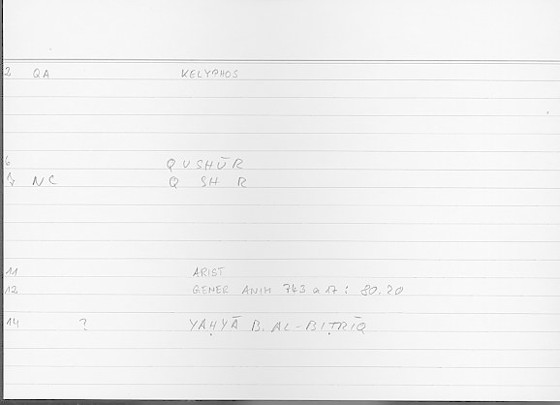 2 QA KELYPHOS
QUSHŪR
NC Q SH R
11 ARIST
12 GENER ANIM 743 a 17 : 80,20
14 ? YAḤYĀ B. AL-BIṬRĪQ